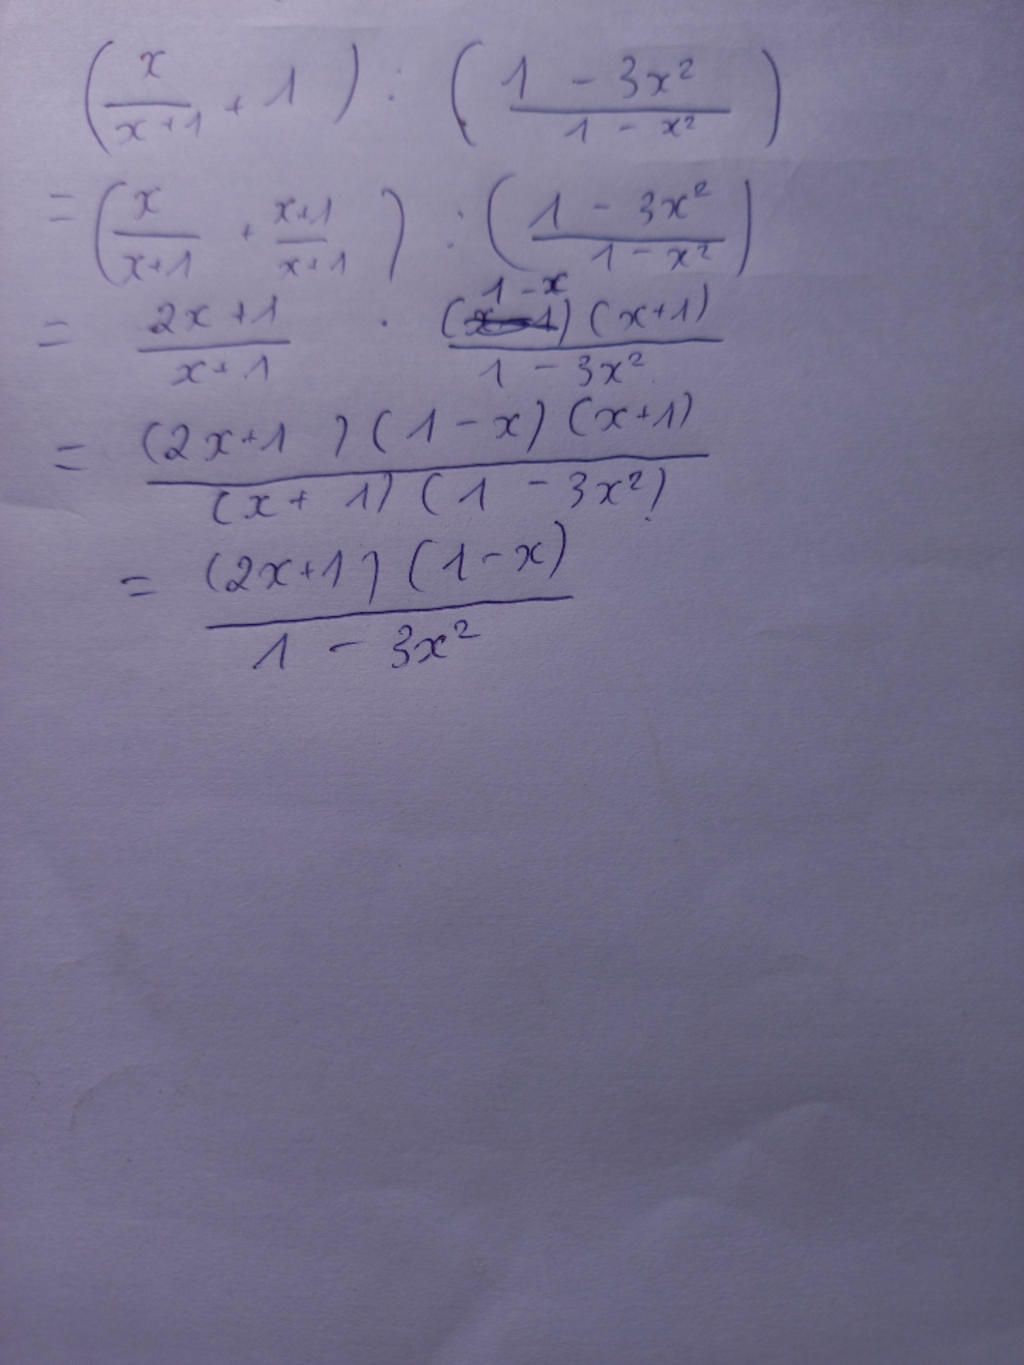 (x/(x+1) + 1) : ((1 - 3x²)/(1 - x²))
= (x/(x+1) + (x+1)/(x+1)) : ((1 - 3x²)/(1 - x²))
= (2x+1)/(x+1) · ((1-x)(x+1))/(1 - 3x²)
= ((2x+1)(1-x)(x+1))/((x+1)(1 - 3x²))
= ((2x+1)(1-x))/(1 - 3x²)